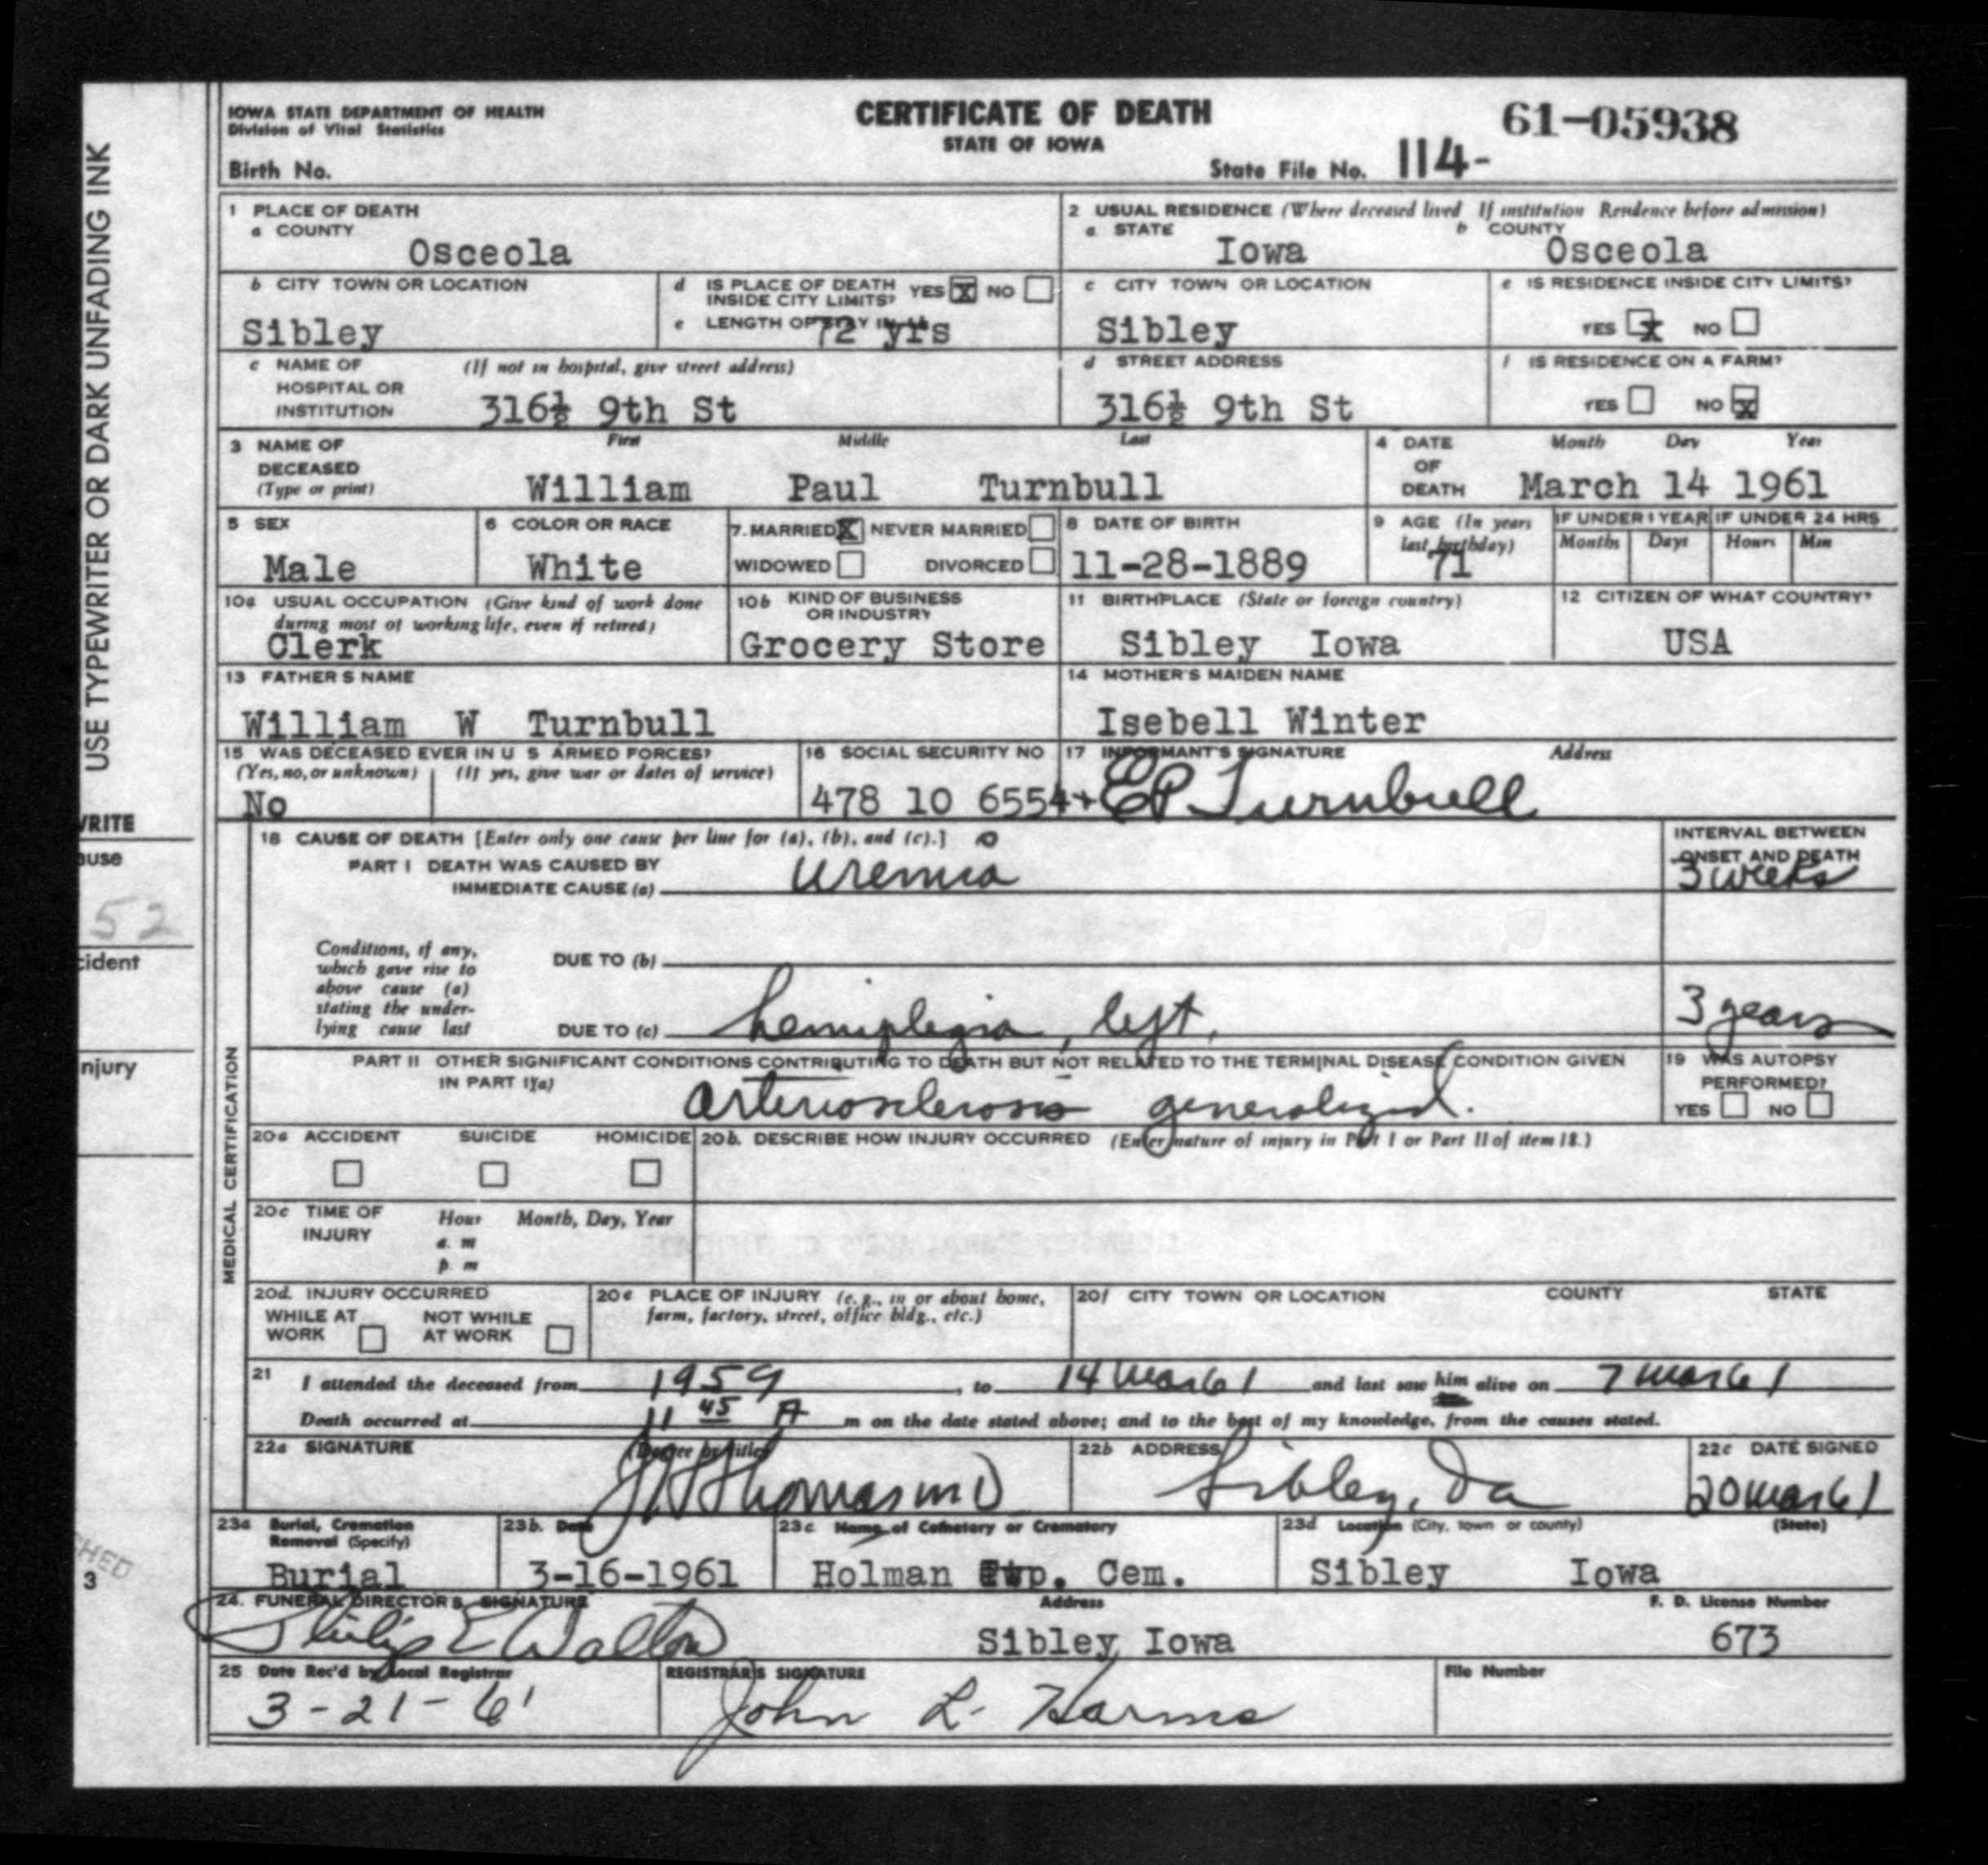 IOWA STATE DEPARTMENT OF HEALTH
Division of Vital Statistics
Birth No.
CERTIFICATE OF DEATH
STATE OF IOWA
61-05938
State File No. 114-
USE TYPEWRITER OR DARK UNFADING INK
1 PLACE OF DEATH
a COUNTY
Osceola
2 USUAL RESIDENCE (Where deceased lived If institution Residence before admission)
a STATE Iowa b COUNTY Osceola
b CITY TOWN OR LOCATION
Sibley
d IS PLACE OF DEATH INSIDE CITY LIMITS? YES X NO
e LENGTH OF STAY IN 1b
72 yrs
c CITY TOWN OR LOCATION
Sibley
e IS RESIDENCE INSIDE CITY LIMITS?
YES X NO
c NAME OF HOSPITAL OR INSTITUTION (If not in hospital, give street address)
316½ 9th St
d STREET ADDRESS
316½ 9th St
f IS RESIDENCE ON A FARM?
YES NO X
3 NAME OF DECEASED (Type or print)
First Middle Last
William Paul Turnbull
4 DATE OF DEATH Month Day Year
March 14 1961
5 SEX
Male
6 COLOR OR RACE
White
7. MARRIED X NEVER MARRIED
WIDOWED DIVORCED
8 DATE OF BIRTH
11-28-1889
9 AGE (In years last birthday)
71
IF UNDER 1 YEAR IF UNDER 24 HRS
Months Days Hours Min
10a USUAL OCCUPATION (Give kind of work done during most of working life, even if retired)
Clerk
10b KIND OF BUSINESS OR INDUSTRY
Grocery Store
11 BIRTHPLACE (State or foreign country)
Sibley Iowa
12 CITIZEN OF WHAT COUNTRY?
USA
13 FATHER'S NAME
William W Turnbull
14 MOTHER'S MAIDEN NAME
Isebell Winter
15 WAS DECEASED EVER IN U S ARMED FORCES?
(Yes, no, or unknown) (If yes, give war or dates of service)
No
16 SOCIAL SECURITY NO
478 10 6554
17 INFORMANT'S SIGNATURE Address
EP Turnbull
/RITE
ause
52
cident
njury
MEDICAL CERTIFICATION
18 CAUSE OF DEATH [Enter only one cause per line for (a), (b), and (c).]
INTERVAL BETWEEN ONSET AND DEATH
PART I DEATH WAS CAUSED BY
IMMEDIATE CAUSE (a) uremia
3 weeks
Conditions, if any, which gave rise to above cause (a) stating the underlying cause last
DUE TO (b)
DUE TO (c) hemiplegia, left,
3 years
PART II OTHER SIGNIFICANT CONDITIONS CONTRIBUTING TO DEATH BUT NOT RELATED TO THE TERMINAL DISEASE CONDITION GIVEN IN PART I(a)
arteriosclerosis generalized.
19 WAS AUTOPSY PERFORMED?
YES NO
20a ACCIDENT SUICIDE HOMICIDE
20b. DESCRIBE HOW INJURY OCCURRED (Enter nature of injury in Part I or Part II of item 18.)
20c TIME OF INJURY Hour Month, Day, Year
a. m
p. m
20d. INJURY OCCURRED
WHILE AT WORK NOT WHILE AT WORK
20e PLACE OF INJURY (e.g., in or about home, farm, factory, street, office bldg., etc.)
20f CITY TOWN OR LOCATION COUNTY STATE
21 I attended the deceased from 1959, to 14 Mar 61 and last saw him alive on 7 Mar 61
Death occurred at 11 45 A m on the date stated above; and to the best of my knowledge, from the causes stated.
22a SIGNATURE (Degree or title)
Thomas MD
22b ADDRESS
Sibley, Ia
22c DATE SIGNED
20 Mar 61
23a Burial, Cremation Removal (Specify)
Burial
23b. Date
3-16-1961
23c Name of Cemetery or Crematory
Holman Twp. Cem.
23d Location (City, town or county) (State)
Sibley Iowa
HED
3
24. FUNERAL DIRECTOR'S SIGNATURE
Philip E Walton
Address
Sibley Iowa
F. D. License Number
673
25 Date Rec'd by Local Registrar
3-21-61
REGISTRAR'S SIGNATURE
John L. Harms
File Number